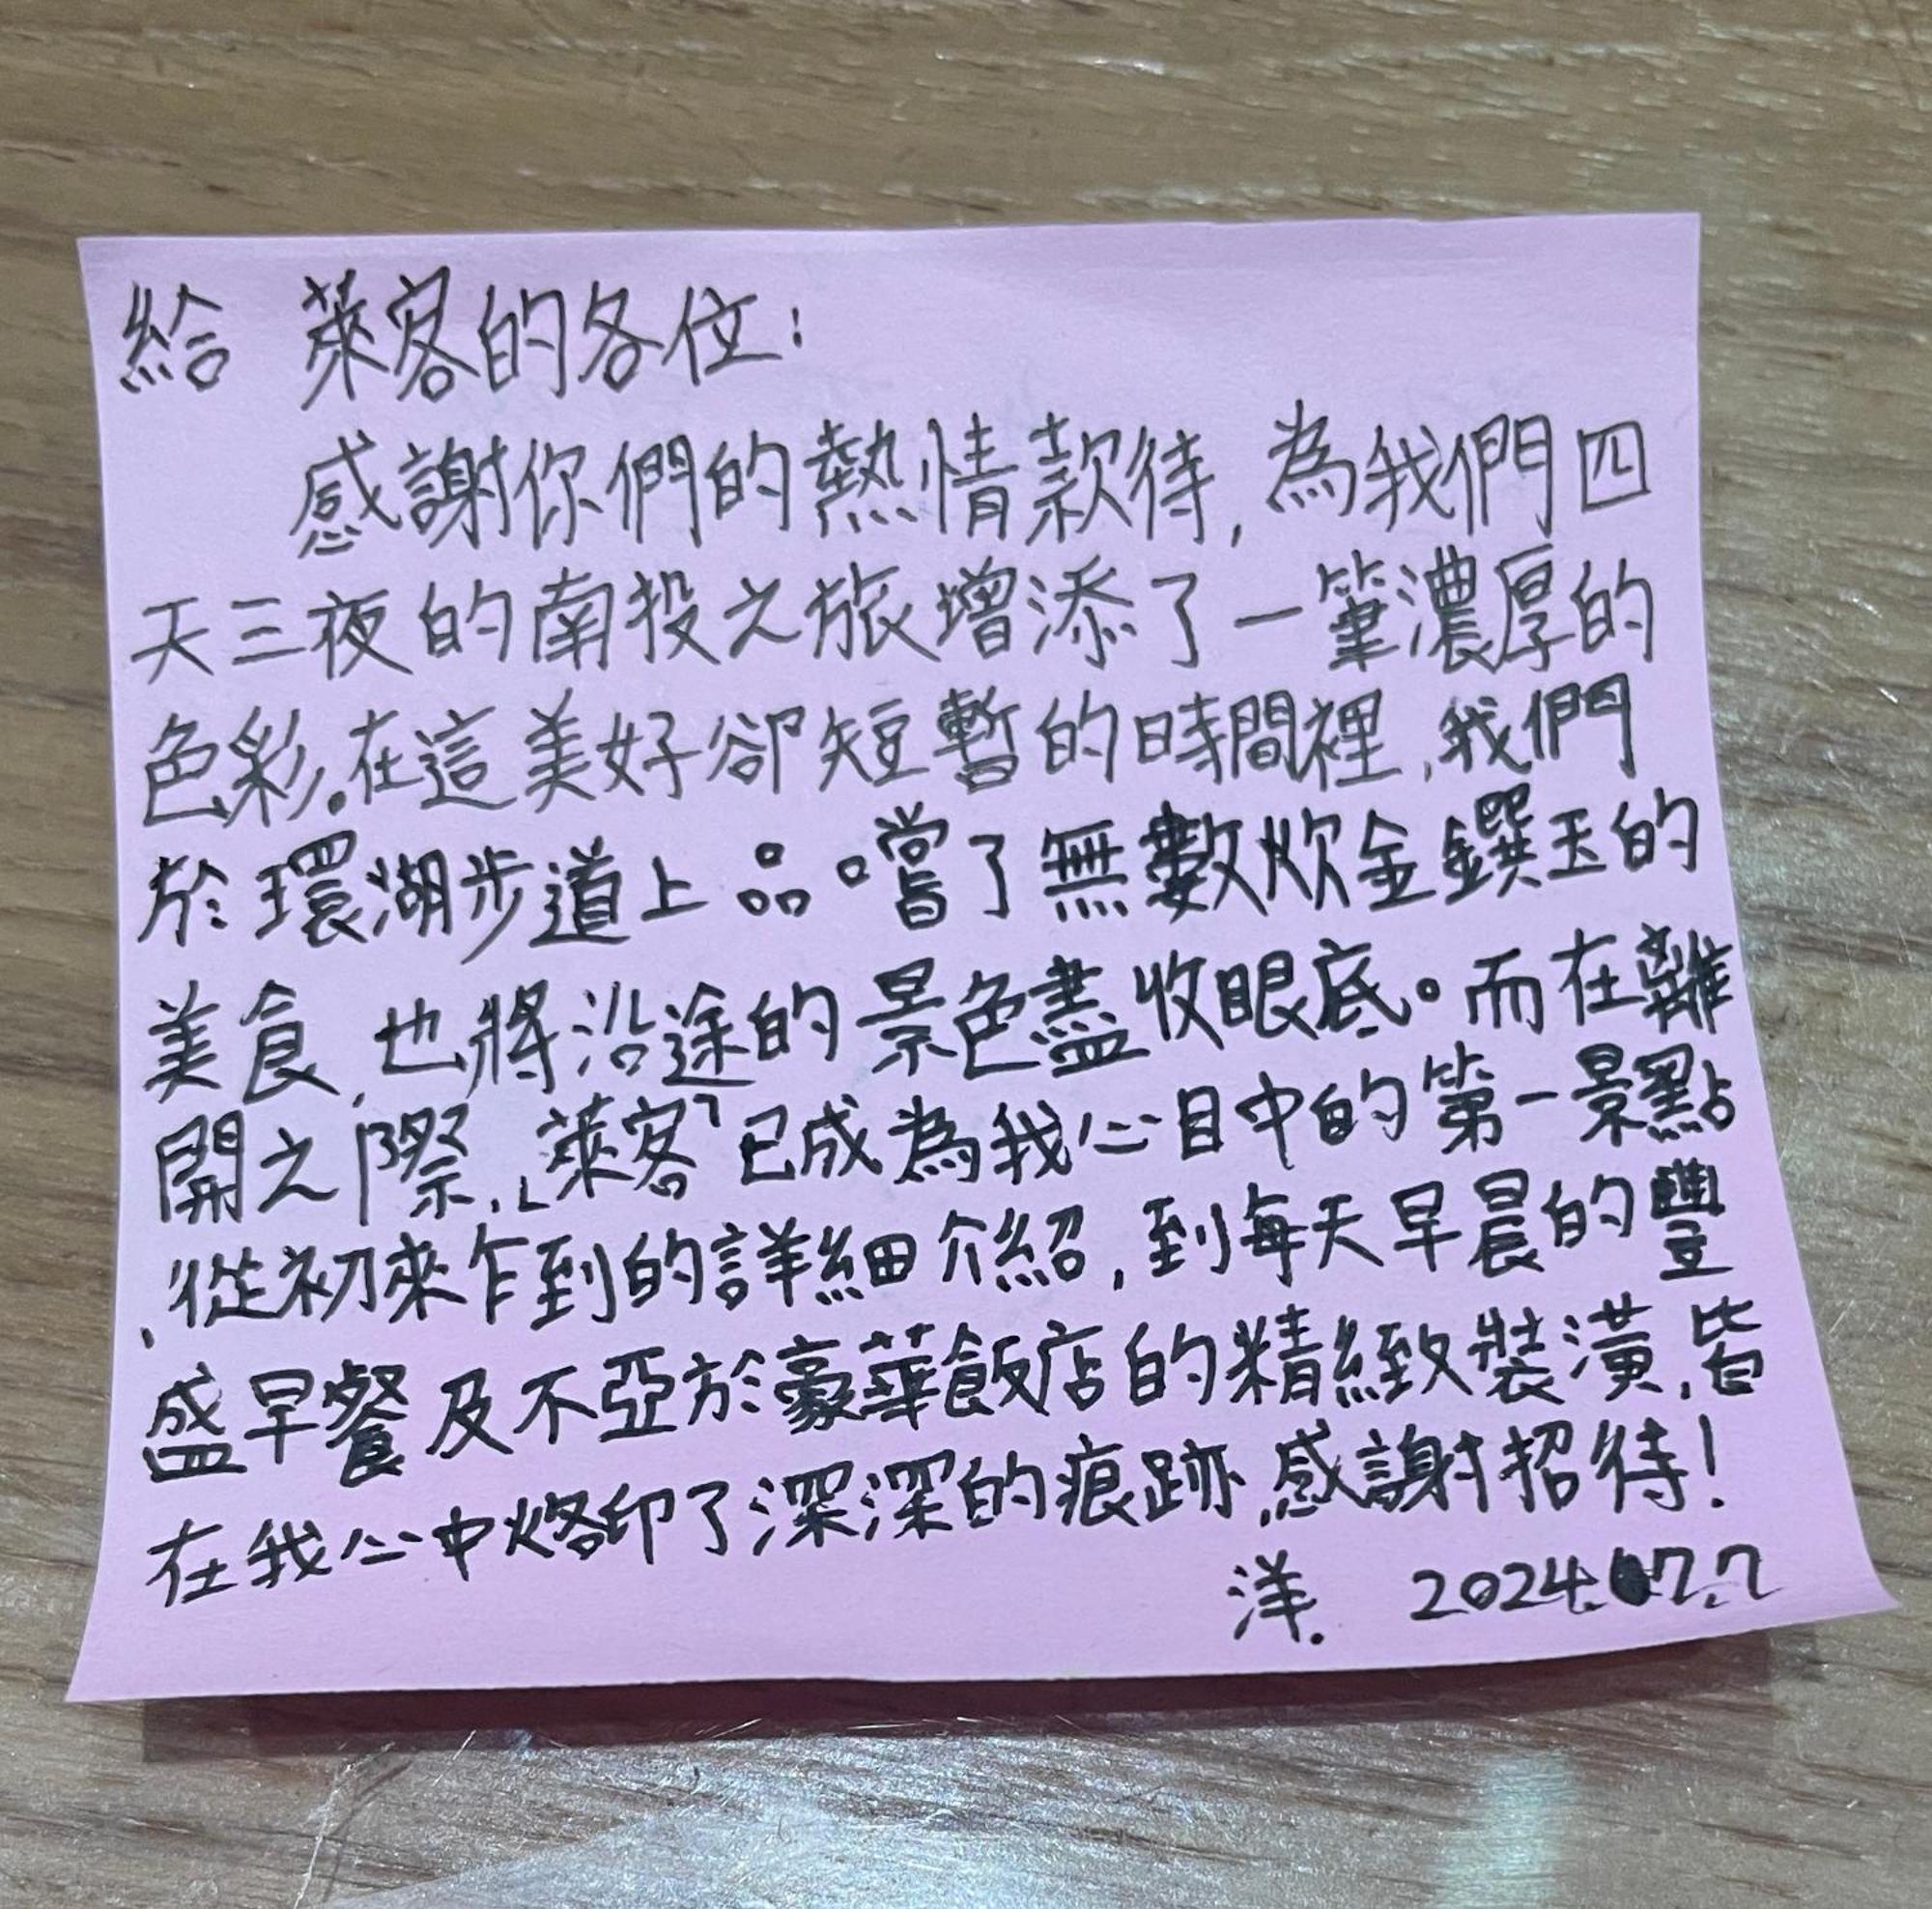 給 萊客的各位：
感謝你們的熱情款待，為我們四
天三夜的南投之旅增添了一筆濃厚的
色彩。在這美好卻短暫的時間裡，我們
於環湖步道上品嚐了無數炊金饌玉的
美食，也將沿途的景色盡收眼底。而在離
開之際，「萊客」已成為我心目中的第一景點
，從初來乍到的詳細介紹，到每天早晨的豐
盛早餐及不亞於豪華飯店的精緻裝潢，皆
在我心中烙印了深深的痕跡，感謝招待！
洋. 2024.07.7